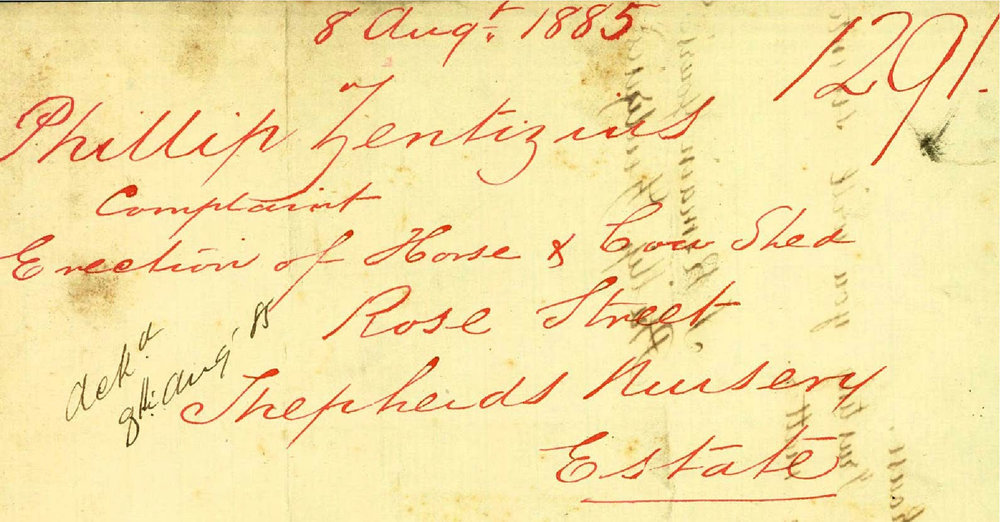 8 Augt. 1885
1291.
Phillip Zentizius
Complaint
Erection of Horse & Cow Shed
Rose Street
Shepherds Nursery
Estate
Ackd
8th Aug 85